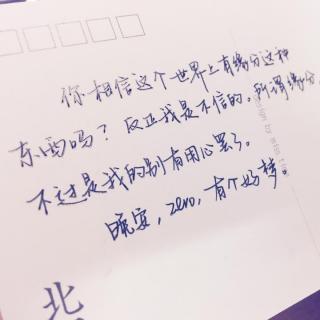 你相信这个世界上有缘分这种
东西吗？反正我是不信的。所谓缘分，
不过是我的别有用心罢了。
晚安，zero，有个好梦。
北